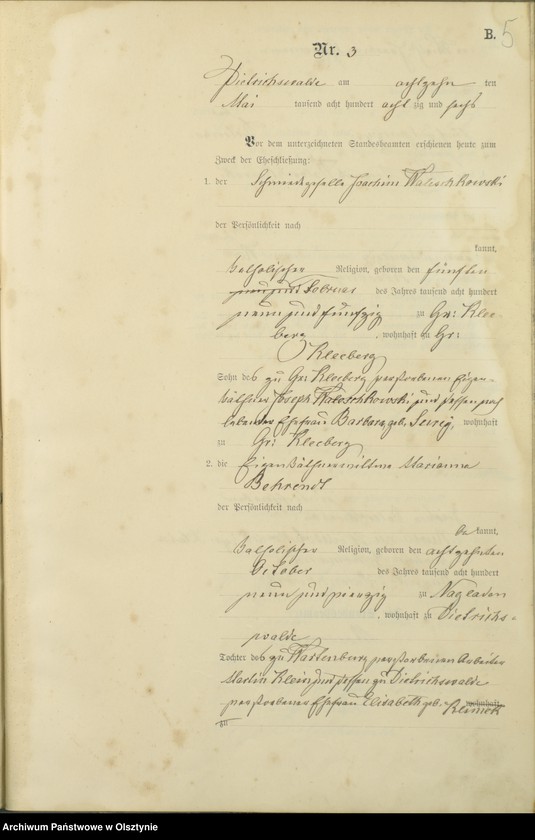 B. 5
Nr. 3
Dietrichswalde am achtzehn ten
Mai tausend acht hundert acht zig und sechs
Vor dem unterzeichneten Standesbeamten erschienen heute zum
Zweck der Eheschließung:
1. der Schmiedegeselle Joachim
der Persönlichkeit nach
kannt,
katholischer Religion, geboren den fünften
Februar des Jahres tausend acht hundert
neun und fünfzig zu Gr: Klee-
berg, wohnhaft zu Gr:
Kleeberg
Sohn des zu Gr: Kleeberg verstorbenen Eigen-
käthner Joseph und dessen noch
lebender Ehefrau Barbara geb. wohnhaft
zu Gr: Kleeberg
2. die Eigenkäthnerwittwe Marianna
Behrendt
der Persönlichkeit nach
be kannt,
katholischer Religion, geboren den achtzehnten
October des Jahres tausend acht hundert
neun und vierzig zu Nagladen
, wohnhaft zu Dietrichs-
walde
Tochter des zu Wartenburg verstorbenen Arbeiter
Martin Klein und dessen zu Dietrichswalde
verstorbenen Ehefrau Elisabeth geb. wohnhaft
zu
Archiwum Państwowe w Olsztynie